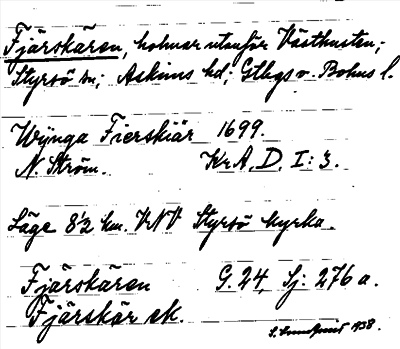 Fjärskären, holmar utanför Västkusten;
Styrsö sn; Askims hd; Gtbgs o. Bohus l.
Wijnga Fierskiär 1699.
N. Ström. Kr.A. D. I: 3.
Läge 8½ km. VNV Styrsö kyrka.
Fjärskären G. 24, Sj: 276 a.
Fjärskär ek.
1938.